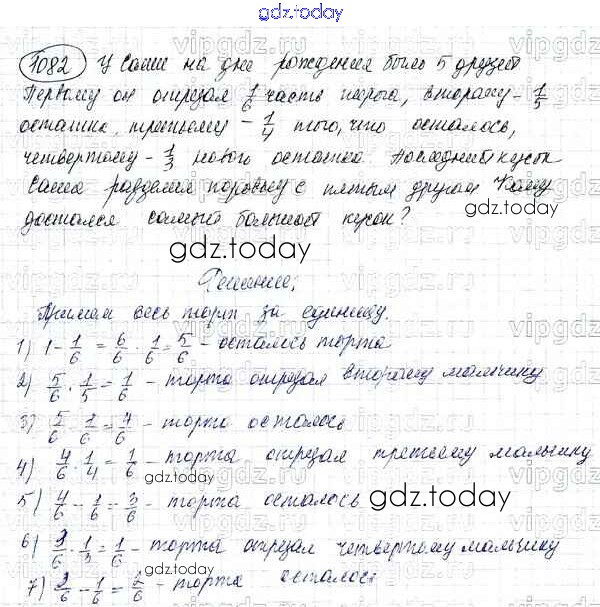 gdz.today
1082) У Саши на дне рождения было 5 друзей
Первому он отрезал 1/6 часть пирога, второму - 1/5
остатка, третьему - 1/4 того, что осталось,
четвертому - 1/3 нового остатка. Последний кусок
Саша разделил поровну с пятым другом Кому
достался самый больший кусок?
gdz.today
gdz.today
Решение:
Примем весь торт за единицу.
1) 1 - 1/6 = 6/6 - 1/6 = 5/6 - осталось торта
2) 5/6 · 1/5 = 1/6 - торта отрезал второму мальчику
3) 5/6 - 1/6 = 4/6 - торта осталось
4) 4/6 · 1/4 = 1/6 - торта отрезал третьему мальчику
gdz.today
5) 4/6 - 1/6 = 3/6 - торта осталось
gdz.today
6) 3/6 · 1/3 = 1/6 - торта отрезал четвертому мальчику
7) 3/6 - 1/6 = 2/6 - торта осталось
gdz.today
vipgdz.ru